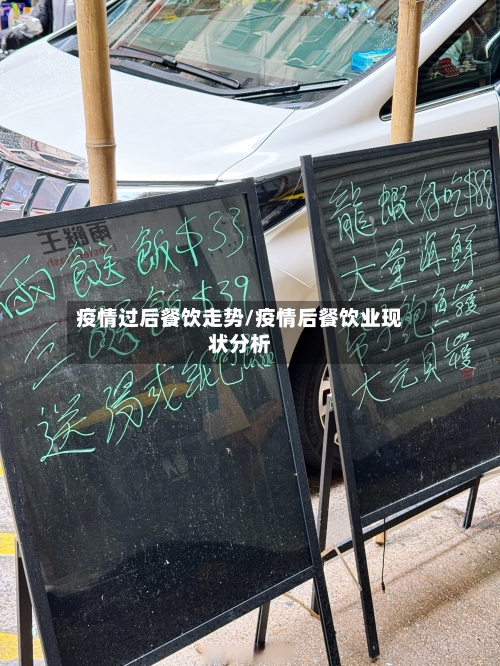 兩餸飯$33
三餸飯$39
送湯或紙包
龍蝦好吃$88
大量海鮮
鮑魚
大元貝
疫情过后餐饮走势/疫情后餐饮业现
状分析